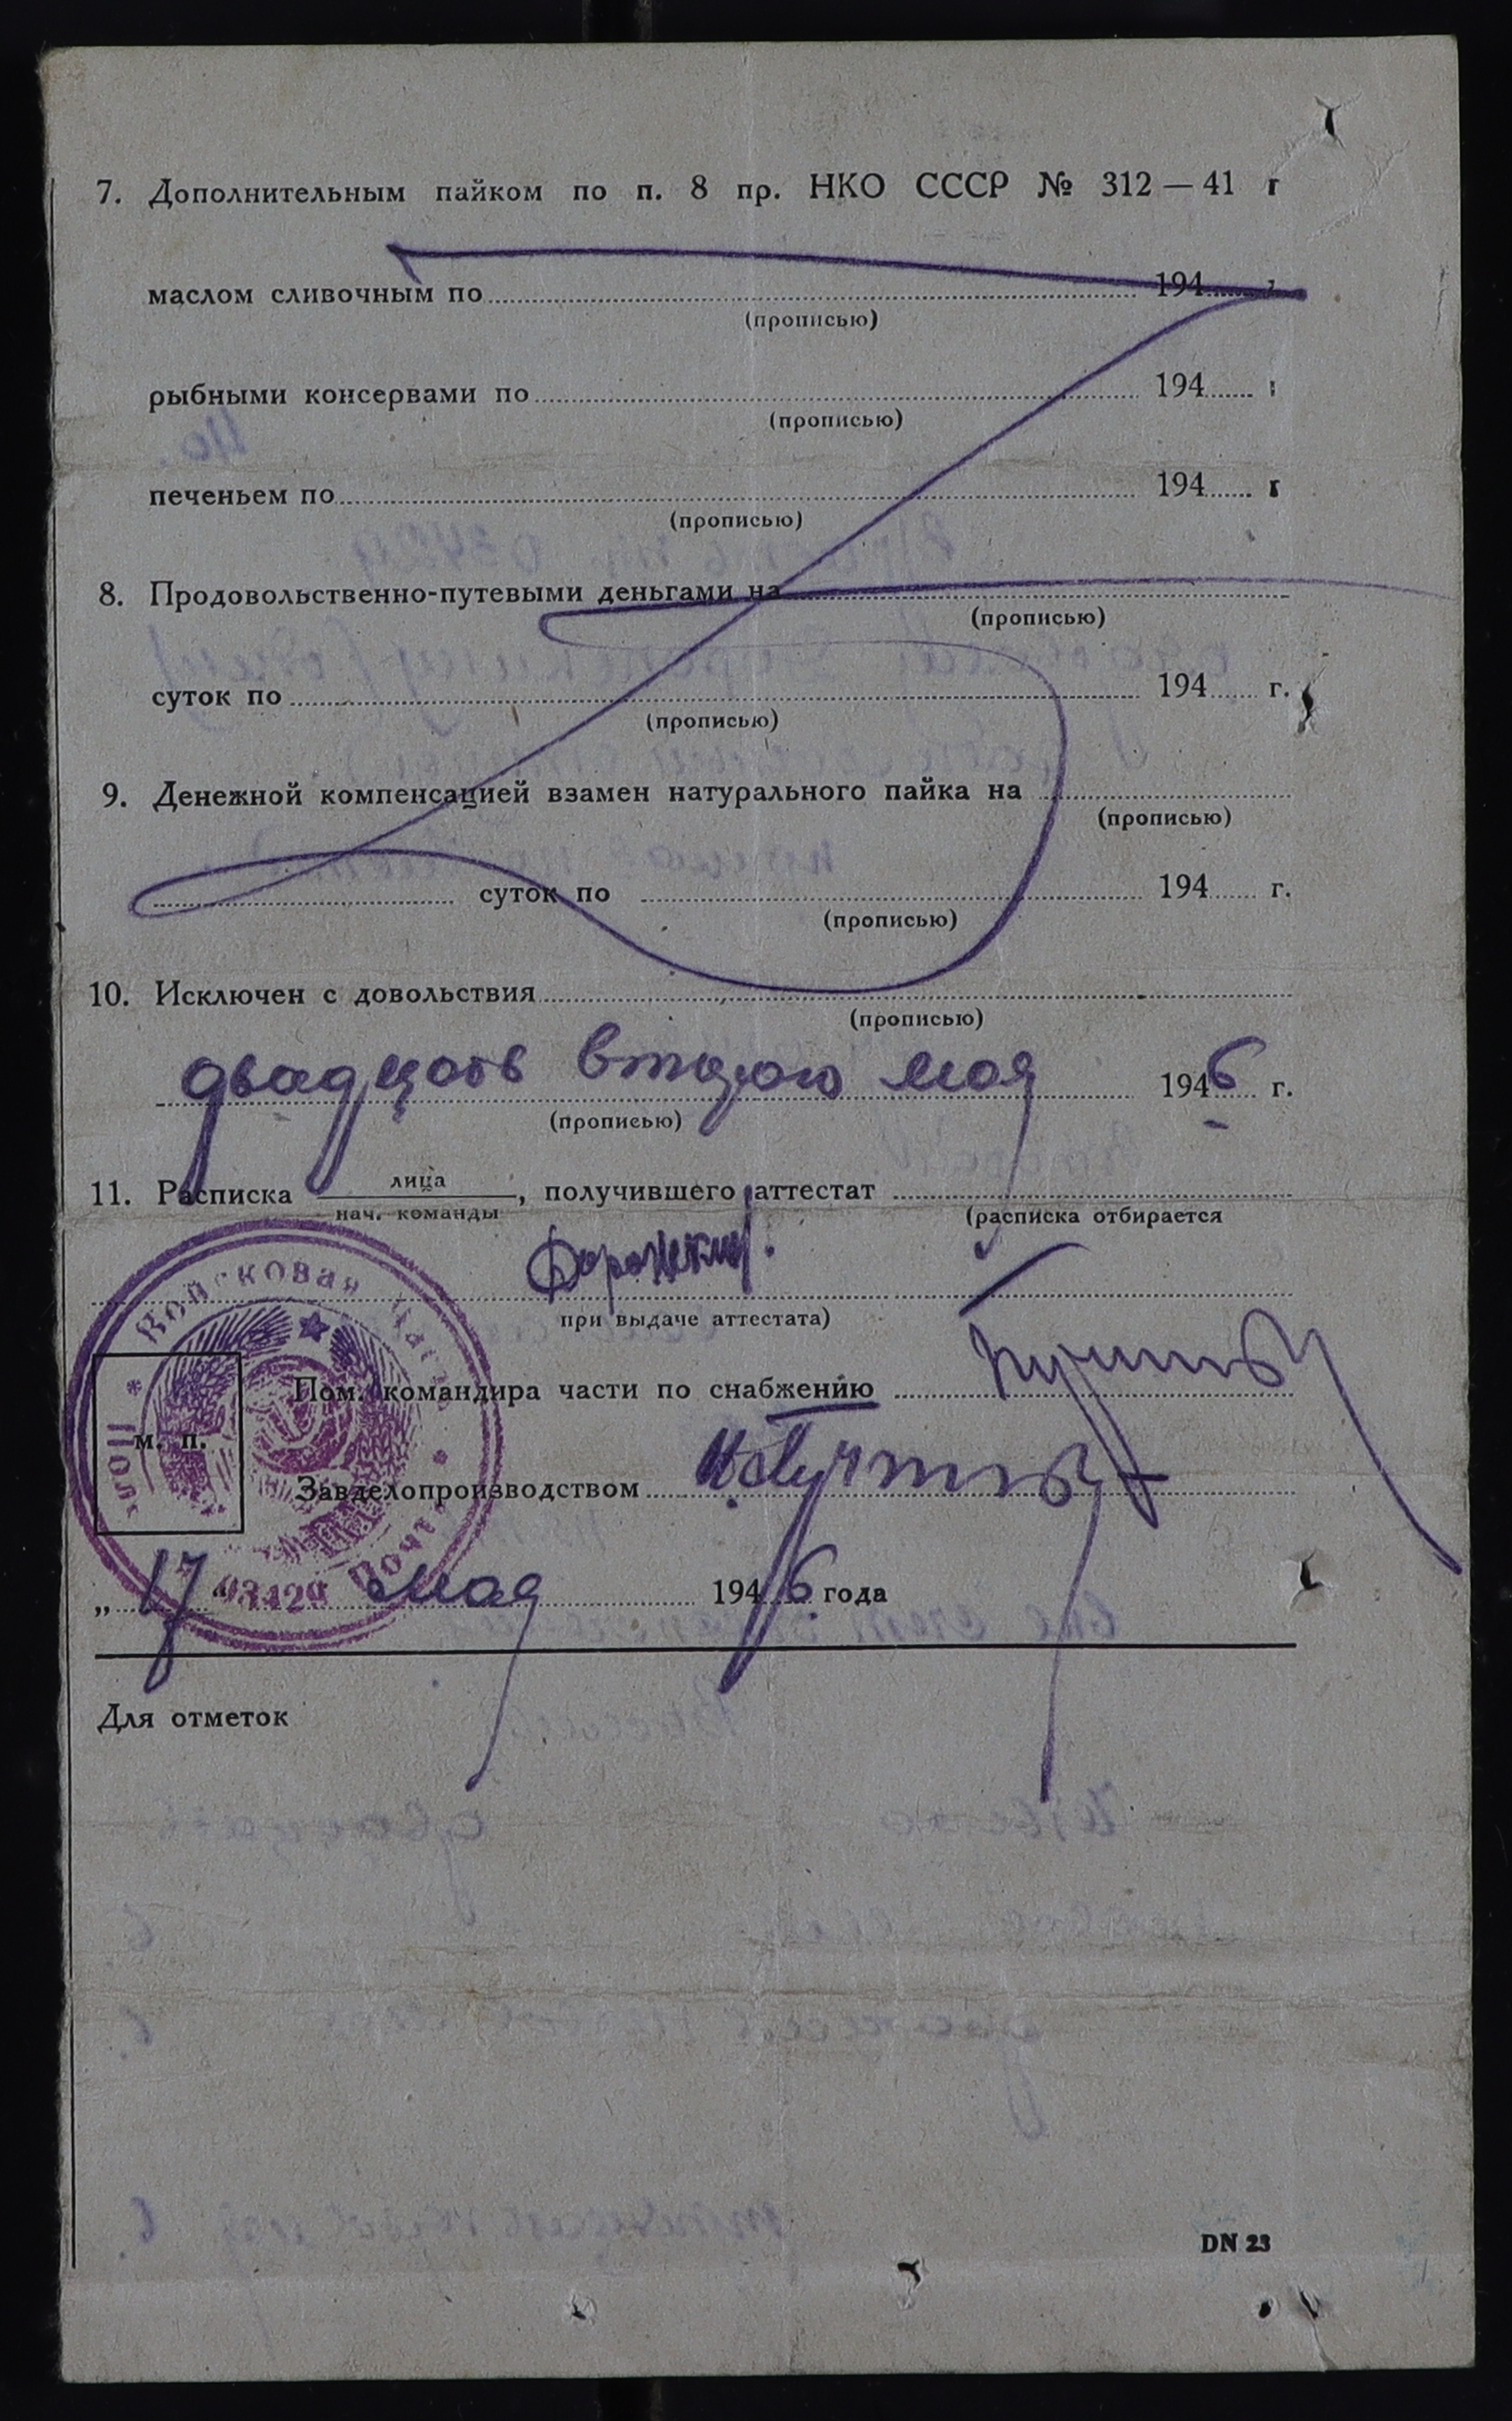 7. Дополнительным пайком по п. 8 пр. НКО СССР № 312 — 41 г
маслом сливочным по 194 г
(прописью)
рыбными консервами по 194 г
(прописью)
печеньем по 194 г
(прописью)
8. Продовольственно-путевыми деньгами на
(прописью)
суток по 194 г.
(прописью)
9. Денежной компенсацией взамен натурального пайка на
(прописью)
суток по 194 г.
(прописью)
10. Исключен с довольствия
(прописью)
двадцать второго мая 1946 г.
(прописью)
11. Расписка лица, получившего аттестат
нач. команды (расписка отбирается
при выдаче аттестата)
Войсковая часть
Пом. командира части по снабжению
м. п.
Полевая Почта
Завделопроизводством
03429
„17“ мая 1946 года
Для отметок
DN 23